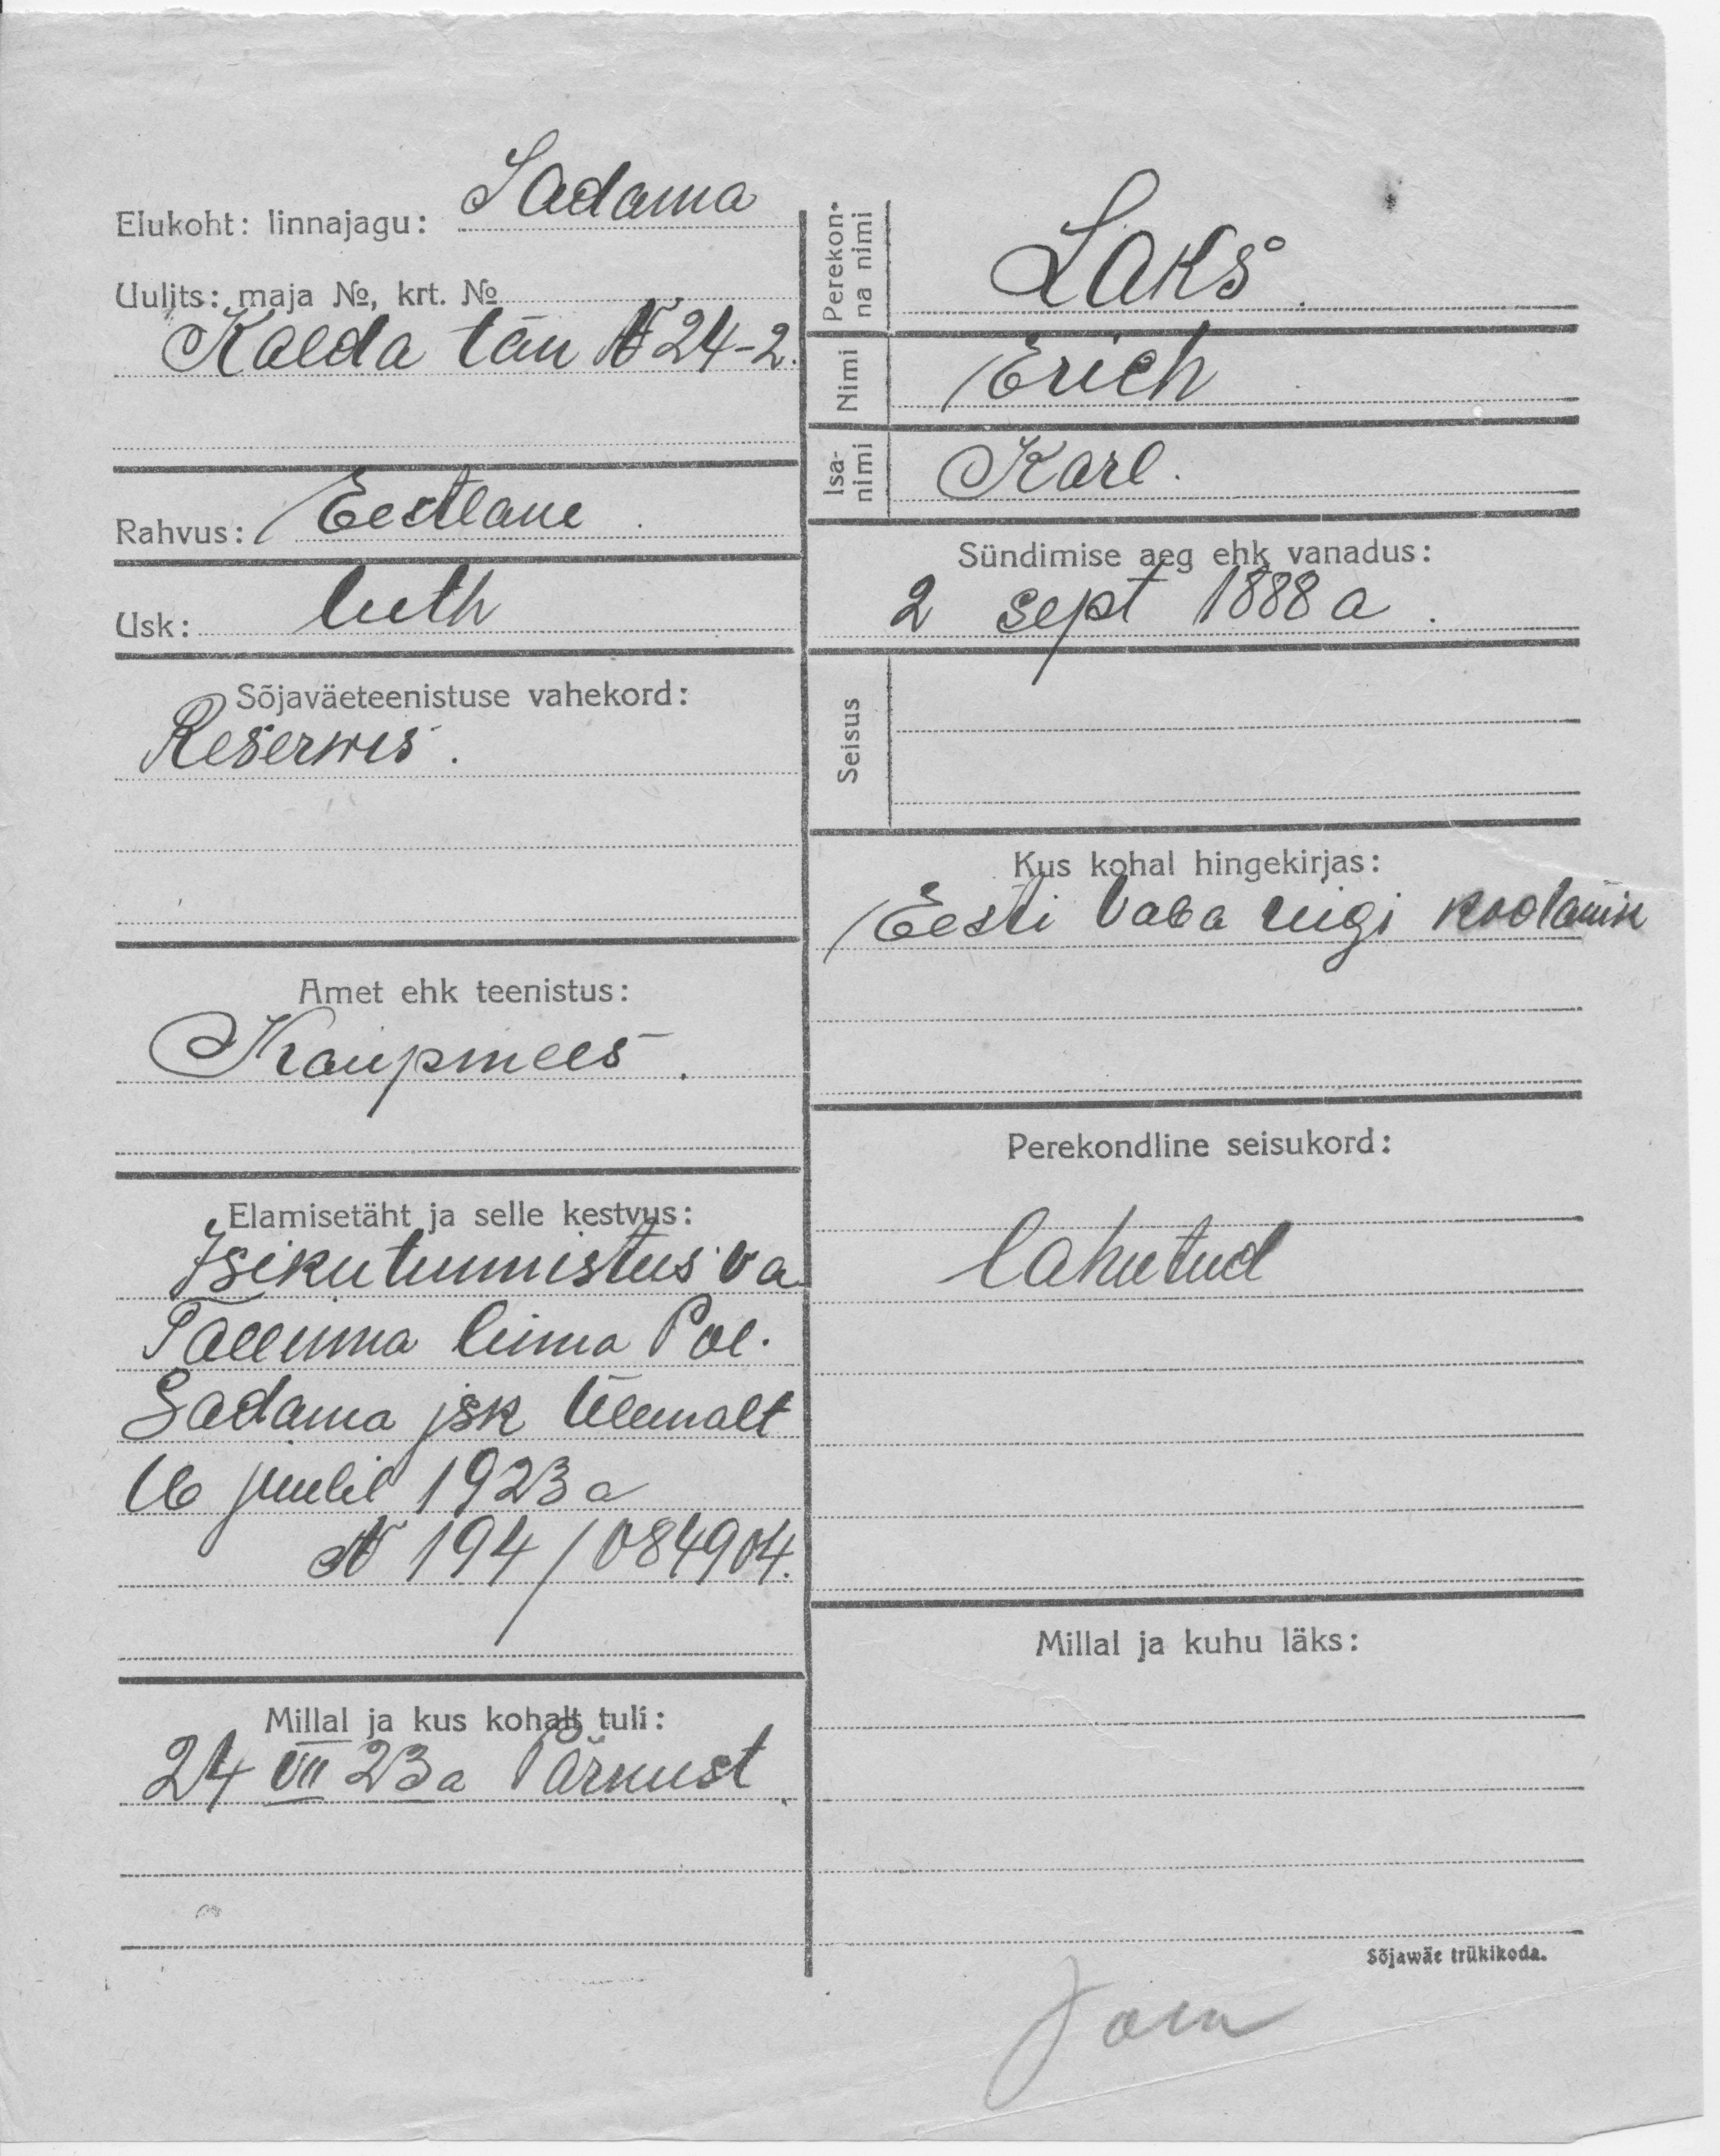 Elukoht: linnajagu: Sadama
Uulits: maja №, krt. №
Kalda tän № 24-2.
Rahvus: Eestlane
Usk: luth
Sõjaväeteenistuse vahekord:
Reserwis.
Amet ehk teenistus:
Kaupmees.
Elamisetäht ja selle kestvus:
Isikutunnistus v a
Tallinna linna Pol.
Sadama jsk Ülemalt
16 juulil 1923 a
№ 194/084904.
Millal ja kus kohalt tuli:
24 VII 23 a Pärnust
Perekonna nimi
Laks
Nimi
Erich
Isanimi
Karl.
Sündimise aeg ehk vanadus:
2 sept 1888 a.
Seisus
Kus kohal hingekirjas:
Eesti vaba riigi kodanik
Perekondline seisukord:
lahutud
Millal ja kuhu läks:
Sõjawäe trükikoda.